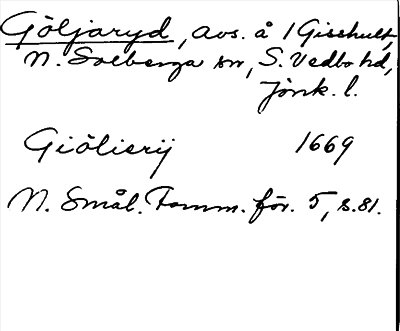 Göljaryd, avs. å 1 Gisshult,
N. Solberga sn, S. Vedbo hd,
Jönk. l.
Giölierij 1669
N. Smål. Fornm. för. 5, s. 81.